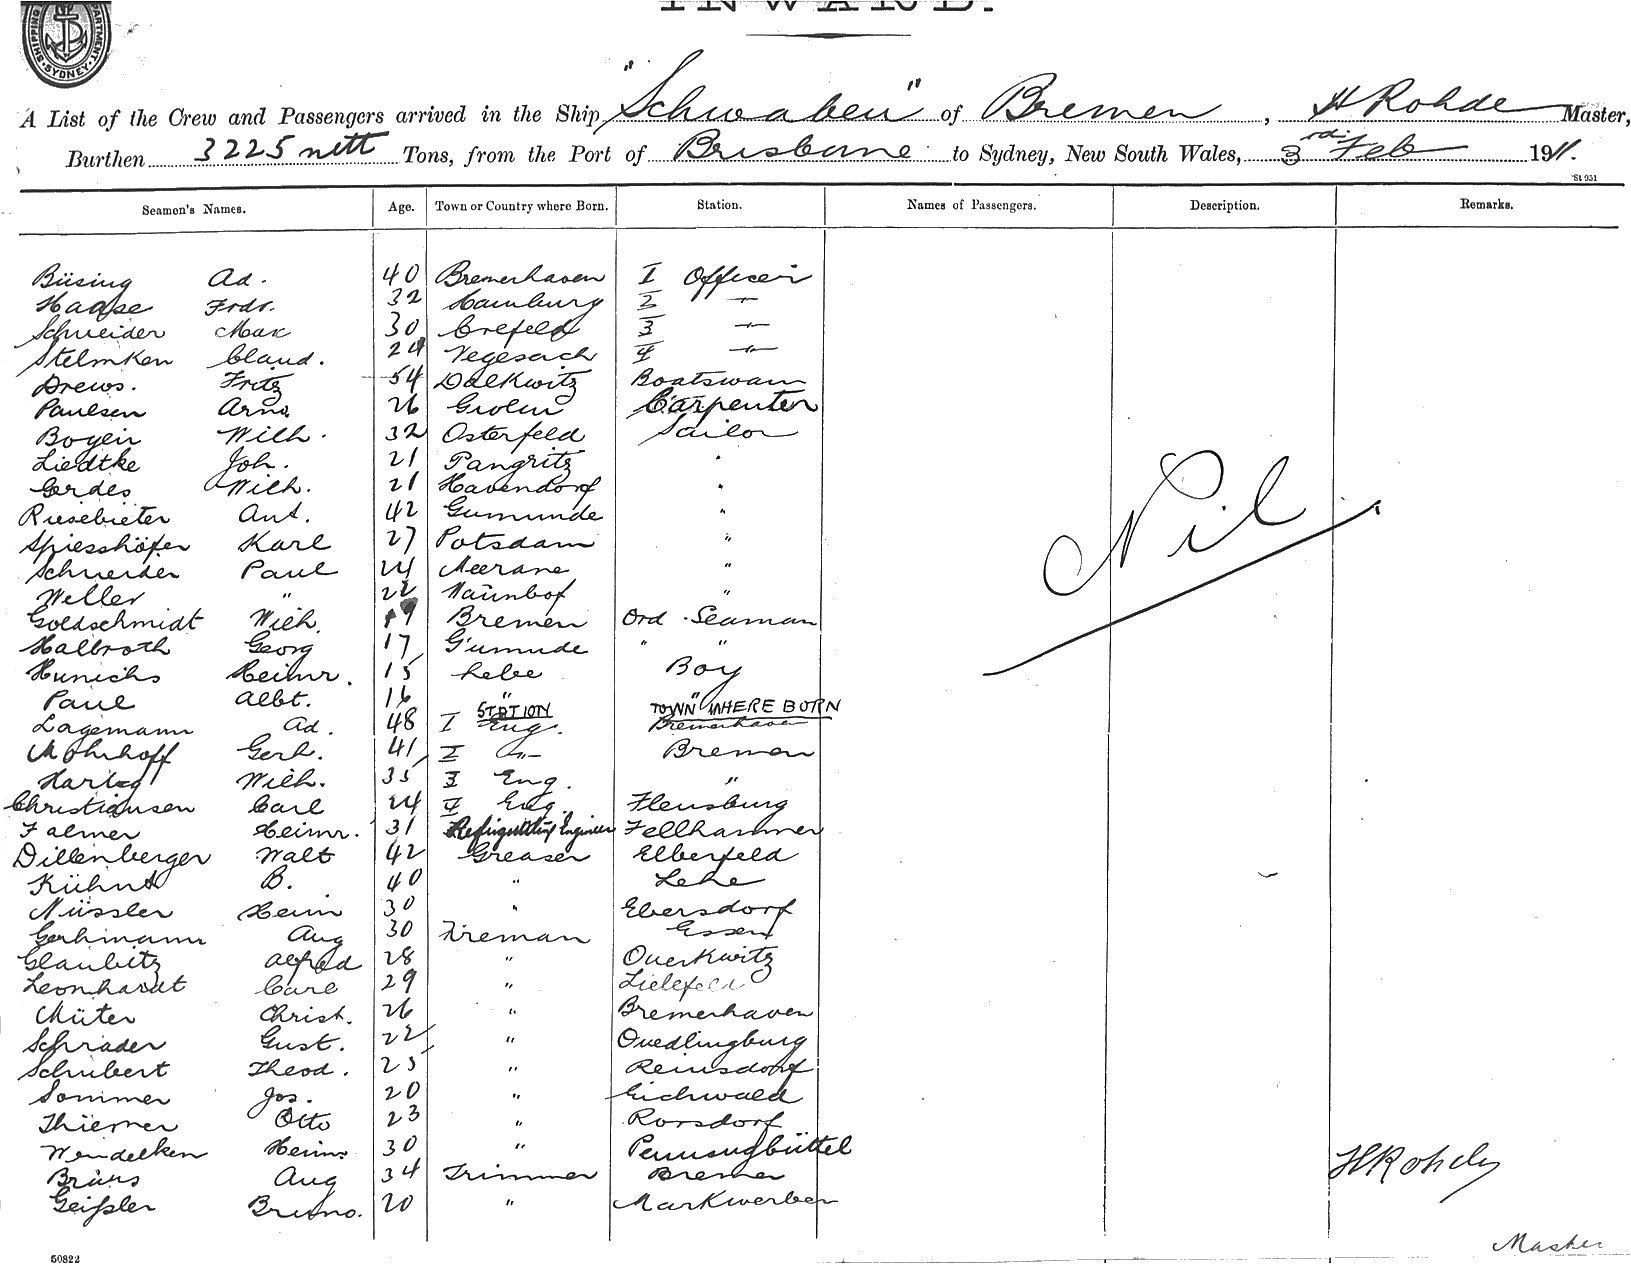 INWARD.
SHIPPING DEPARTMENT SYDNEY
A List of the Crew and Passengers arrived in the Ship "Schwaben" of Bremen, H Rohde Master,
Burthen 3225 nett Tons, from the Port of Brisbane to Sydney, New South Wales, 3rd Feb 1911.
St 931
Seamen's Names. Age. Town or Country where Born. Station. Names of Passengers. Description. Remarks.
Büsing Ad. 40 Bremerhaven I Officer
Haase Frdr. 32 Hamburg 2 "
Schneider Max 30 Crefeld 3 "
Stelmken Claud. 24 Vegesack 4 "
Drews. Fritz 54 Dalkwitz Boatswain
Paulsen Arno. 26 Carpenter
Boyen Wilh. 32 Osterfeld Sailor
Liedtke Joh. 21 Pangritz "
Gerdes Wilh. 21 Havendorf "
Riesebieter Ant. 42 Gumunde "
Spiesshöfer Karl 27 Potsdam "
Schneider Paul 24 Meerane "
Weller " 22 Naunhof "
Goldschmidt Wilh. 19 Bremen Ord. Seaman
Halbroth Georg 17 Gumude " "
Hunichs Heinr. 15 Lehe Boy
Paul Albt. 16 " "
STATION TOWN WHERE BORN
Lagemann Ad. 48 I Eng. Bremerhaven
Mohrhoff Gerh. 41 II " Bremen
Hartog Wilh. 35 3 Eng. "
Christiansen Carl 24 4 Eng. Flensburg
Falmer Heinr. 31 Refrigerating Engineer Fellhammer
Dillenberger Walt 42 Greaser Elberfeld
Kühnt B. 40 " Lehe
Nüssler Heinr 30 " Ebersdorf
Gerhmann Aug 30 Fireman Essen
Glaubitz Alfred 28 " Querkwitz
Leonhardt Carl 29 "
Müter Christ. 26 " Bremerhaven
Schrader Gust. 22 " Quedlingburg
Schubert Theod. 25 " Reinsdorf
Sommer Jos. 20 " Eichwald
Thiemer Otto 23 " Rorsdorf
Wendelken Heinr 30 " Pennsugbüttel
Bruns Aug 34 Trimmer Bremen
Geißler Bruno. 20 " Markwerben
Nil
H Rohde
Master
50822